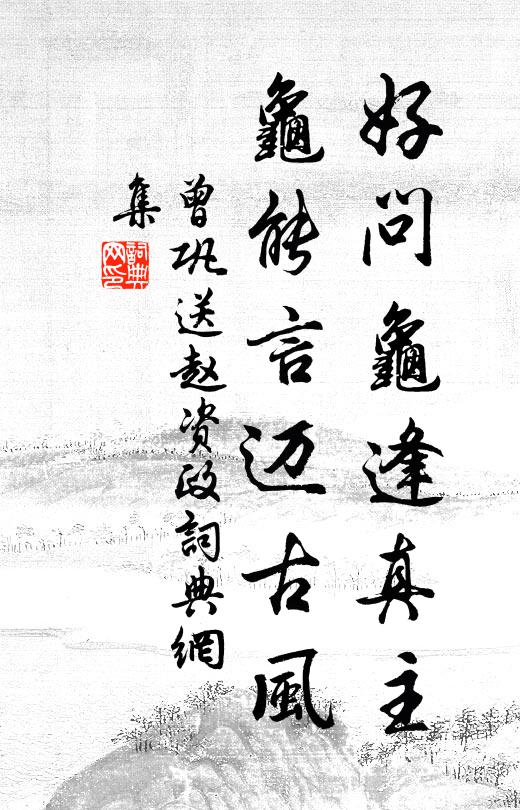 好问龜逢真主
龜能言迈古風
曾巩送赵资政詞典網
集
詞典
网印